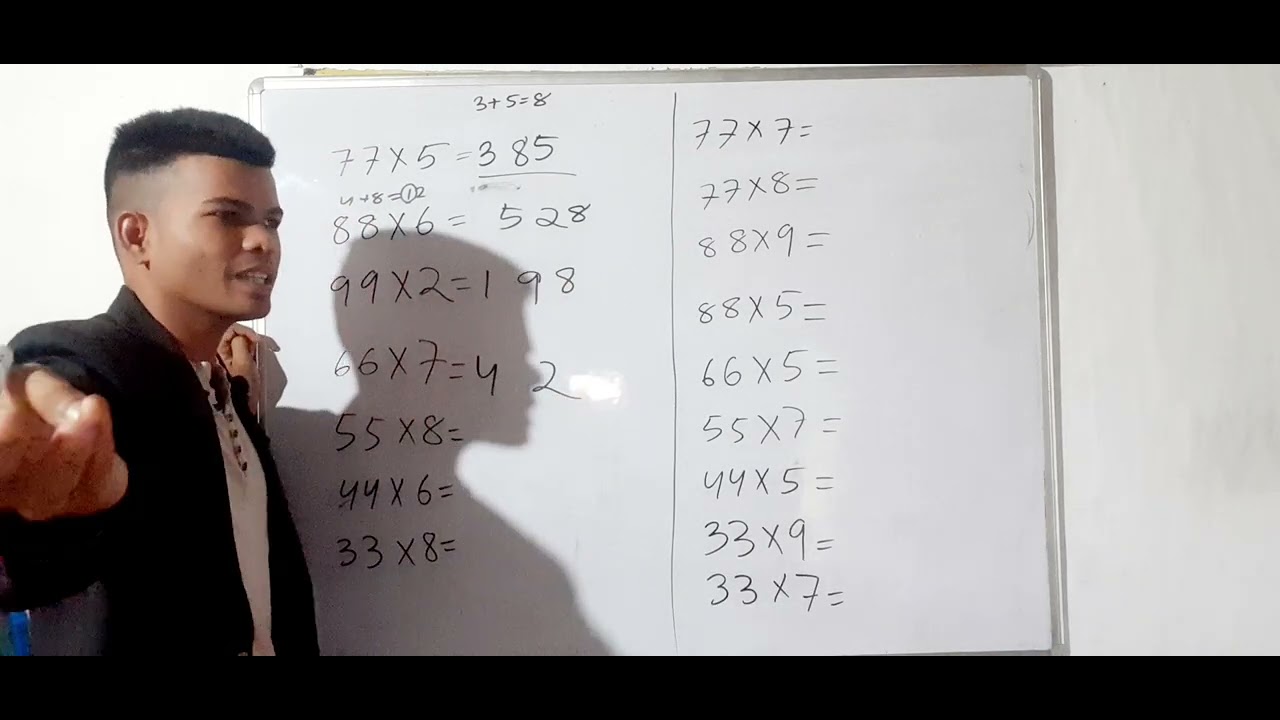 3+5=8
77×5=385
4+8=12
88×6= 528
99×2=198
66×7=4 2
55×8=
44×6=
33×8=
77×7=
77×8=
88×9=
88×5=
66×5=
55×7=
44×5=
33×9=
33×7=